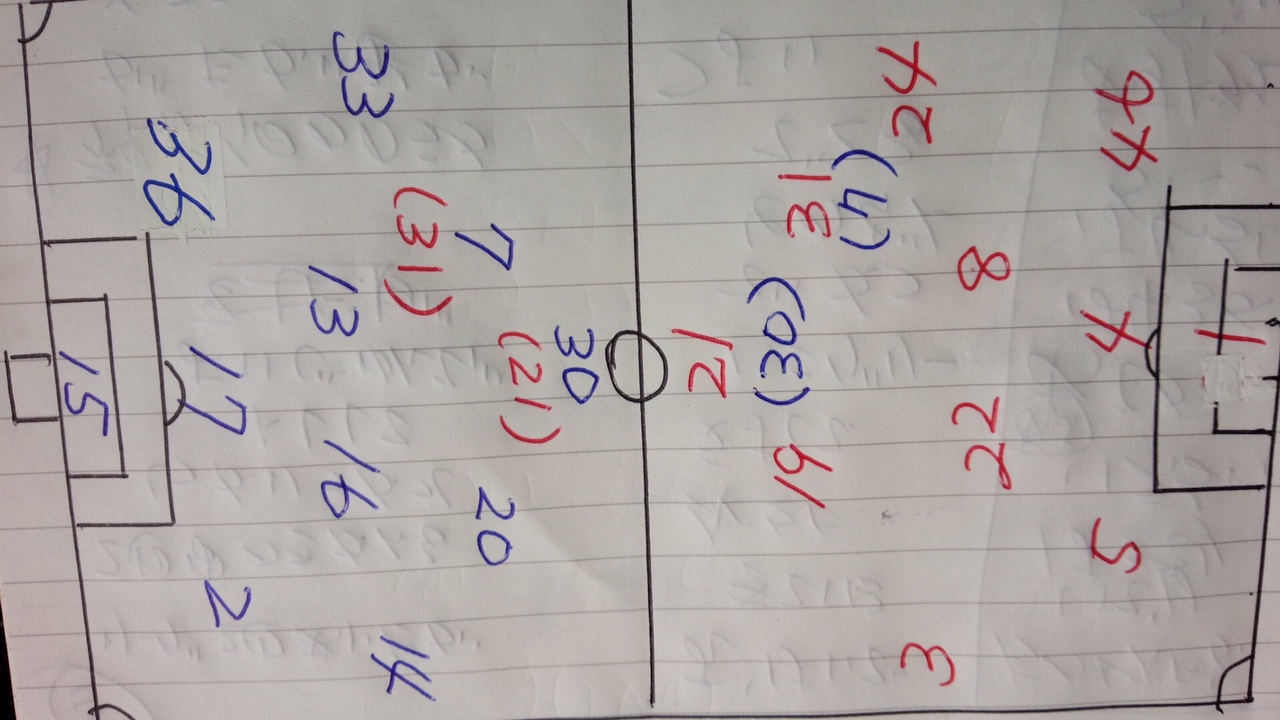 30
(21)
7 20
(31)
33 13 16 14
36 17 2
15
21
19 31
(30) (4)
3 24
22 8
5 4 44
1